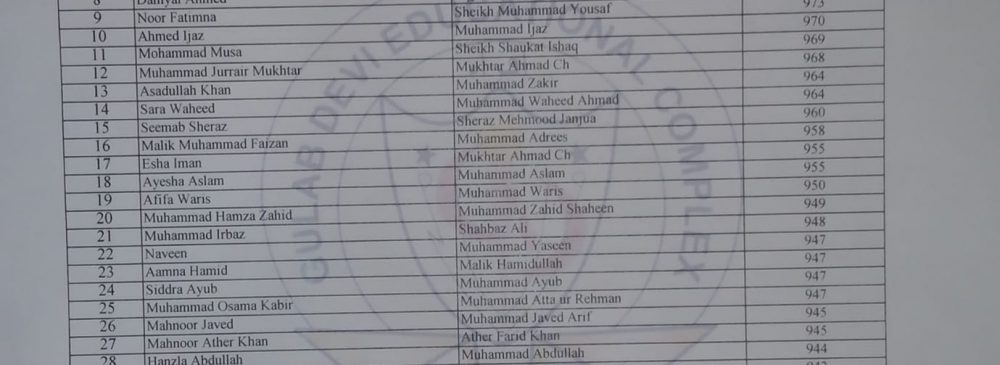 8 Daniyal Ahmed
9 Noor Fatimna Sheikh Muhammad Yousaf 973
10 Ahmed Ijaz Muhammad Ijaz 970
11 Mohammad Musa Sheikh Shaukat Ishaq 969
12 Muhammad Jurrair Mukhtar Mukhtar Ahmad Ch 968
13 Asadullah Khan Muhammad Zakir 964
14 Sara Waheed Muhammad Waheed Ahmad 964
15 Seemab Sheraz Sheraz Mehmood Janjua 960
16 Malik Muhammad Faizan Muhammad Adrees 958
17 Esha Iman Mukhtar Ahmad Ch 955
18 Ayesha Aslam Muhammad Aslam 955
19 Afifa Waris Muhammad Waris 950
20 Muhammad Hamza Zahid Muhammad Zahid Shaheen 949
21 Muhammad Irbaz Shahbaz Ali 948
22 Naveen Muhammad Yaseen 947
23 Aamna Hamid Malik Hamidullah 947
24 Siddra Ayub Muhammad Ayub 947
25 Muhammad Osama Kabir Muhammad Atta ur Rehman 947
26 Mahnoor Javed Muhammad Javed Arif 945
27 Mahnoor Ather Khan Ather Farid Khan 945
28 Hanzla Abdullah Muhammad Abdullah 944
GULAB DEVI EDUCATIONAL COMPLEX